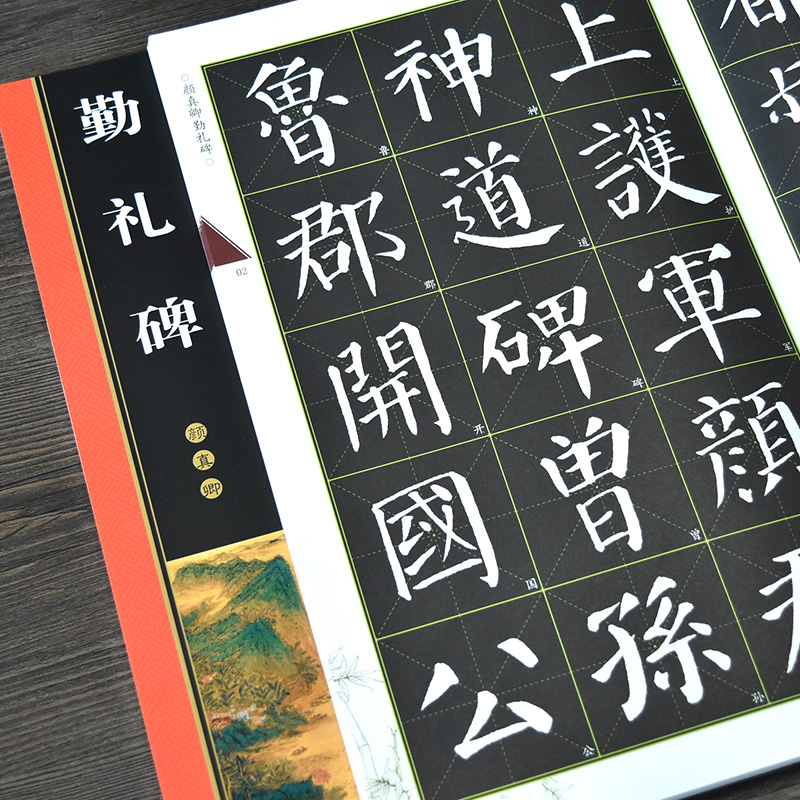 勤礼碑
颜真卿
颜真卿勤礼碑
02
上護軍顏
上护军
神道碑曾孫
神道碑曾孙
魯郡開國公
鲁郡开国公